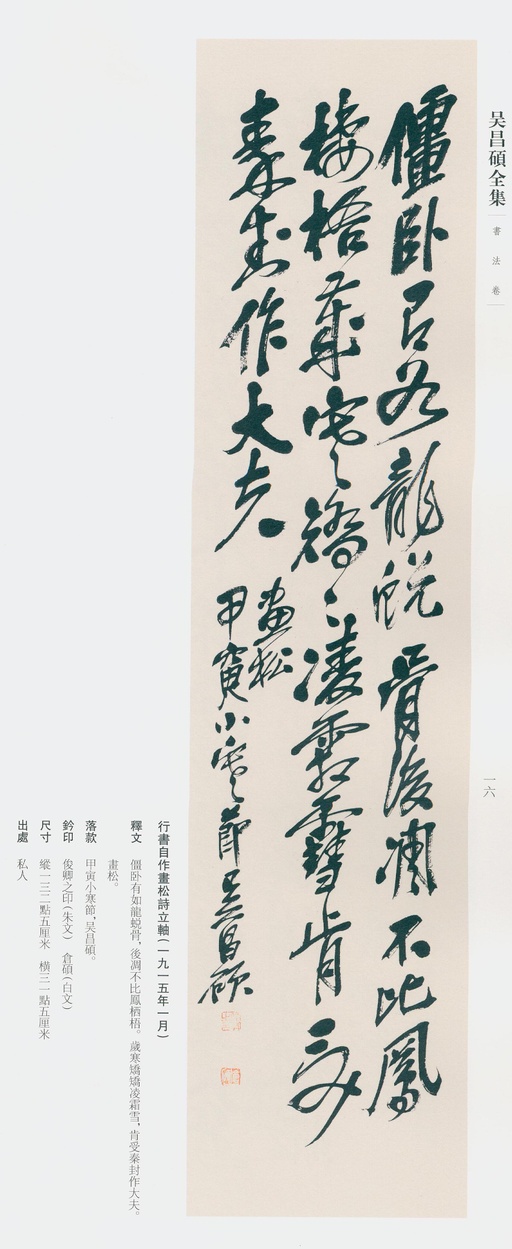 吴昌碩全集
書法卷
一六
僵卧有如龍蜕骨後凋不比鳳
棲梧歲寒矯〻凌霜雪肯受
秦封作大夫
畫松
甲寅小寒節吴昌碩
行書自作畫松詩立軸(一九一五年一月)
釋文 僵卧有如龍蜕骨,後凋不比鳳栖梧。歲寒矯矯凌霜雪,肯受秦封作大夫。
畫松。
落款 甲寅小寒節,吴昌碩。
鈐印 俊卿之印(朱文) 倉碩(白文)
尺寸 縱一三二點五厘米 橫三一點五厘米
出處 私人